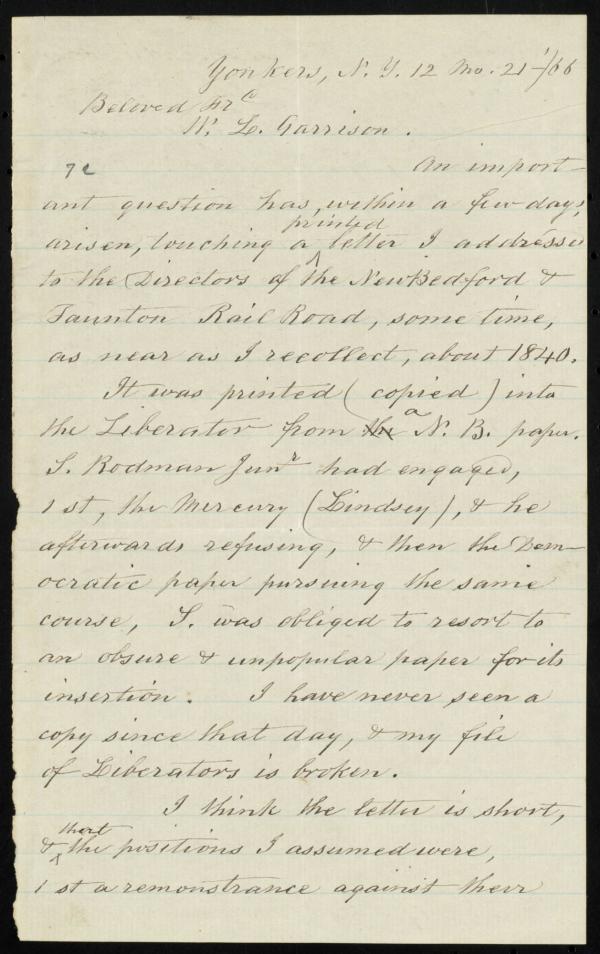 Yonkers, N. Y. 12 Mo. 21 '/66
Beloved Frd
W. L. Garrison.
An import-
ant question has, within a few days,
printed
arisen, touching a letter I addressed
to the Directors of the New Bedford &
Taunton Rail Road, some time,
as near as I recollect, about 1840.
It was printed (copied) into
the Liberator from the a N. B. paper.
S. Rodman Junr had engaged,
1st, the Mercury (Lindsey), & he
afterwards refusing, & then the Dem-
ocratic paper pursuing the same
course, S. was obliged to resort to
an obsure & unpopular paper for its
insertion. I have never seen a
copy since that day, & my file
of Liberators is broken.
I think the letter is short,
that
& the positions I assumed were,
1st a remonstrance against their